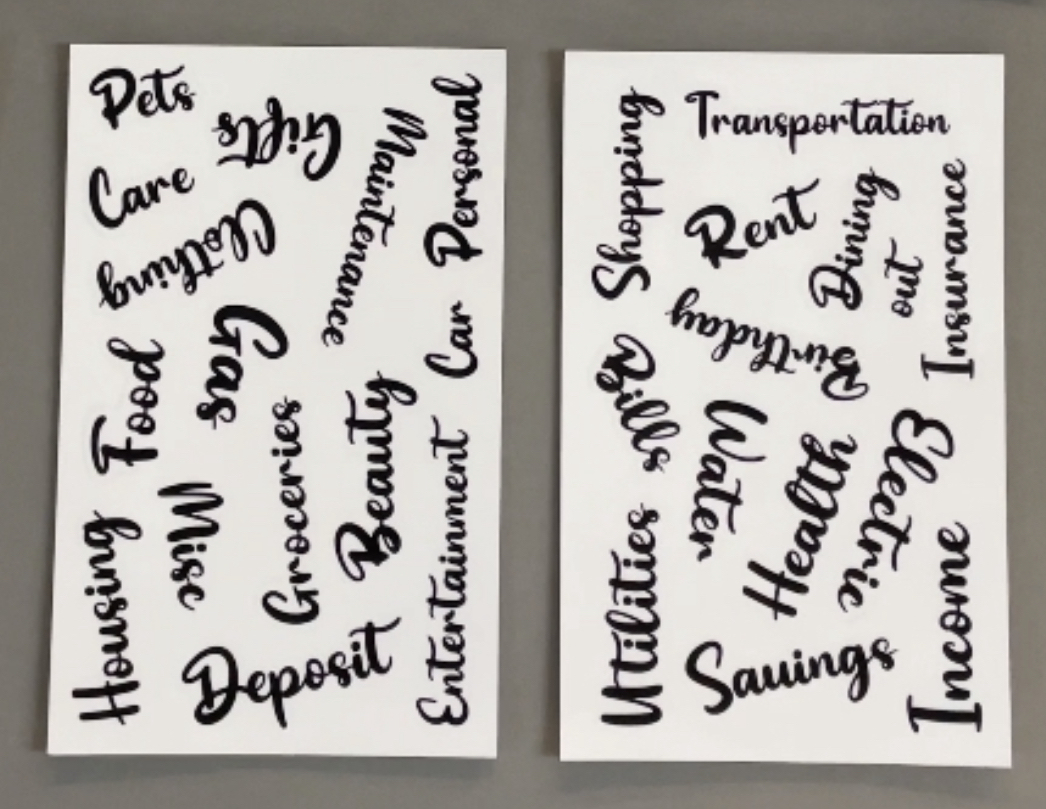 Pets
Gifts
Maintenance
Personal
Care
Clothing
Gas
Car
Food
Groceries
Beauty
Entertainment
Misc
Housing
Deposit
Shopping
Transportation
Rent
Dining
out
Insurance
Birthday
Bills
Water
Health
Electric
Utilities
Savings
Income